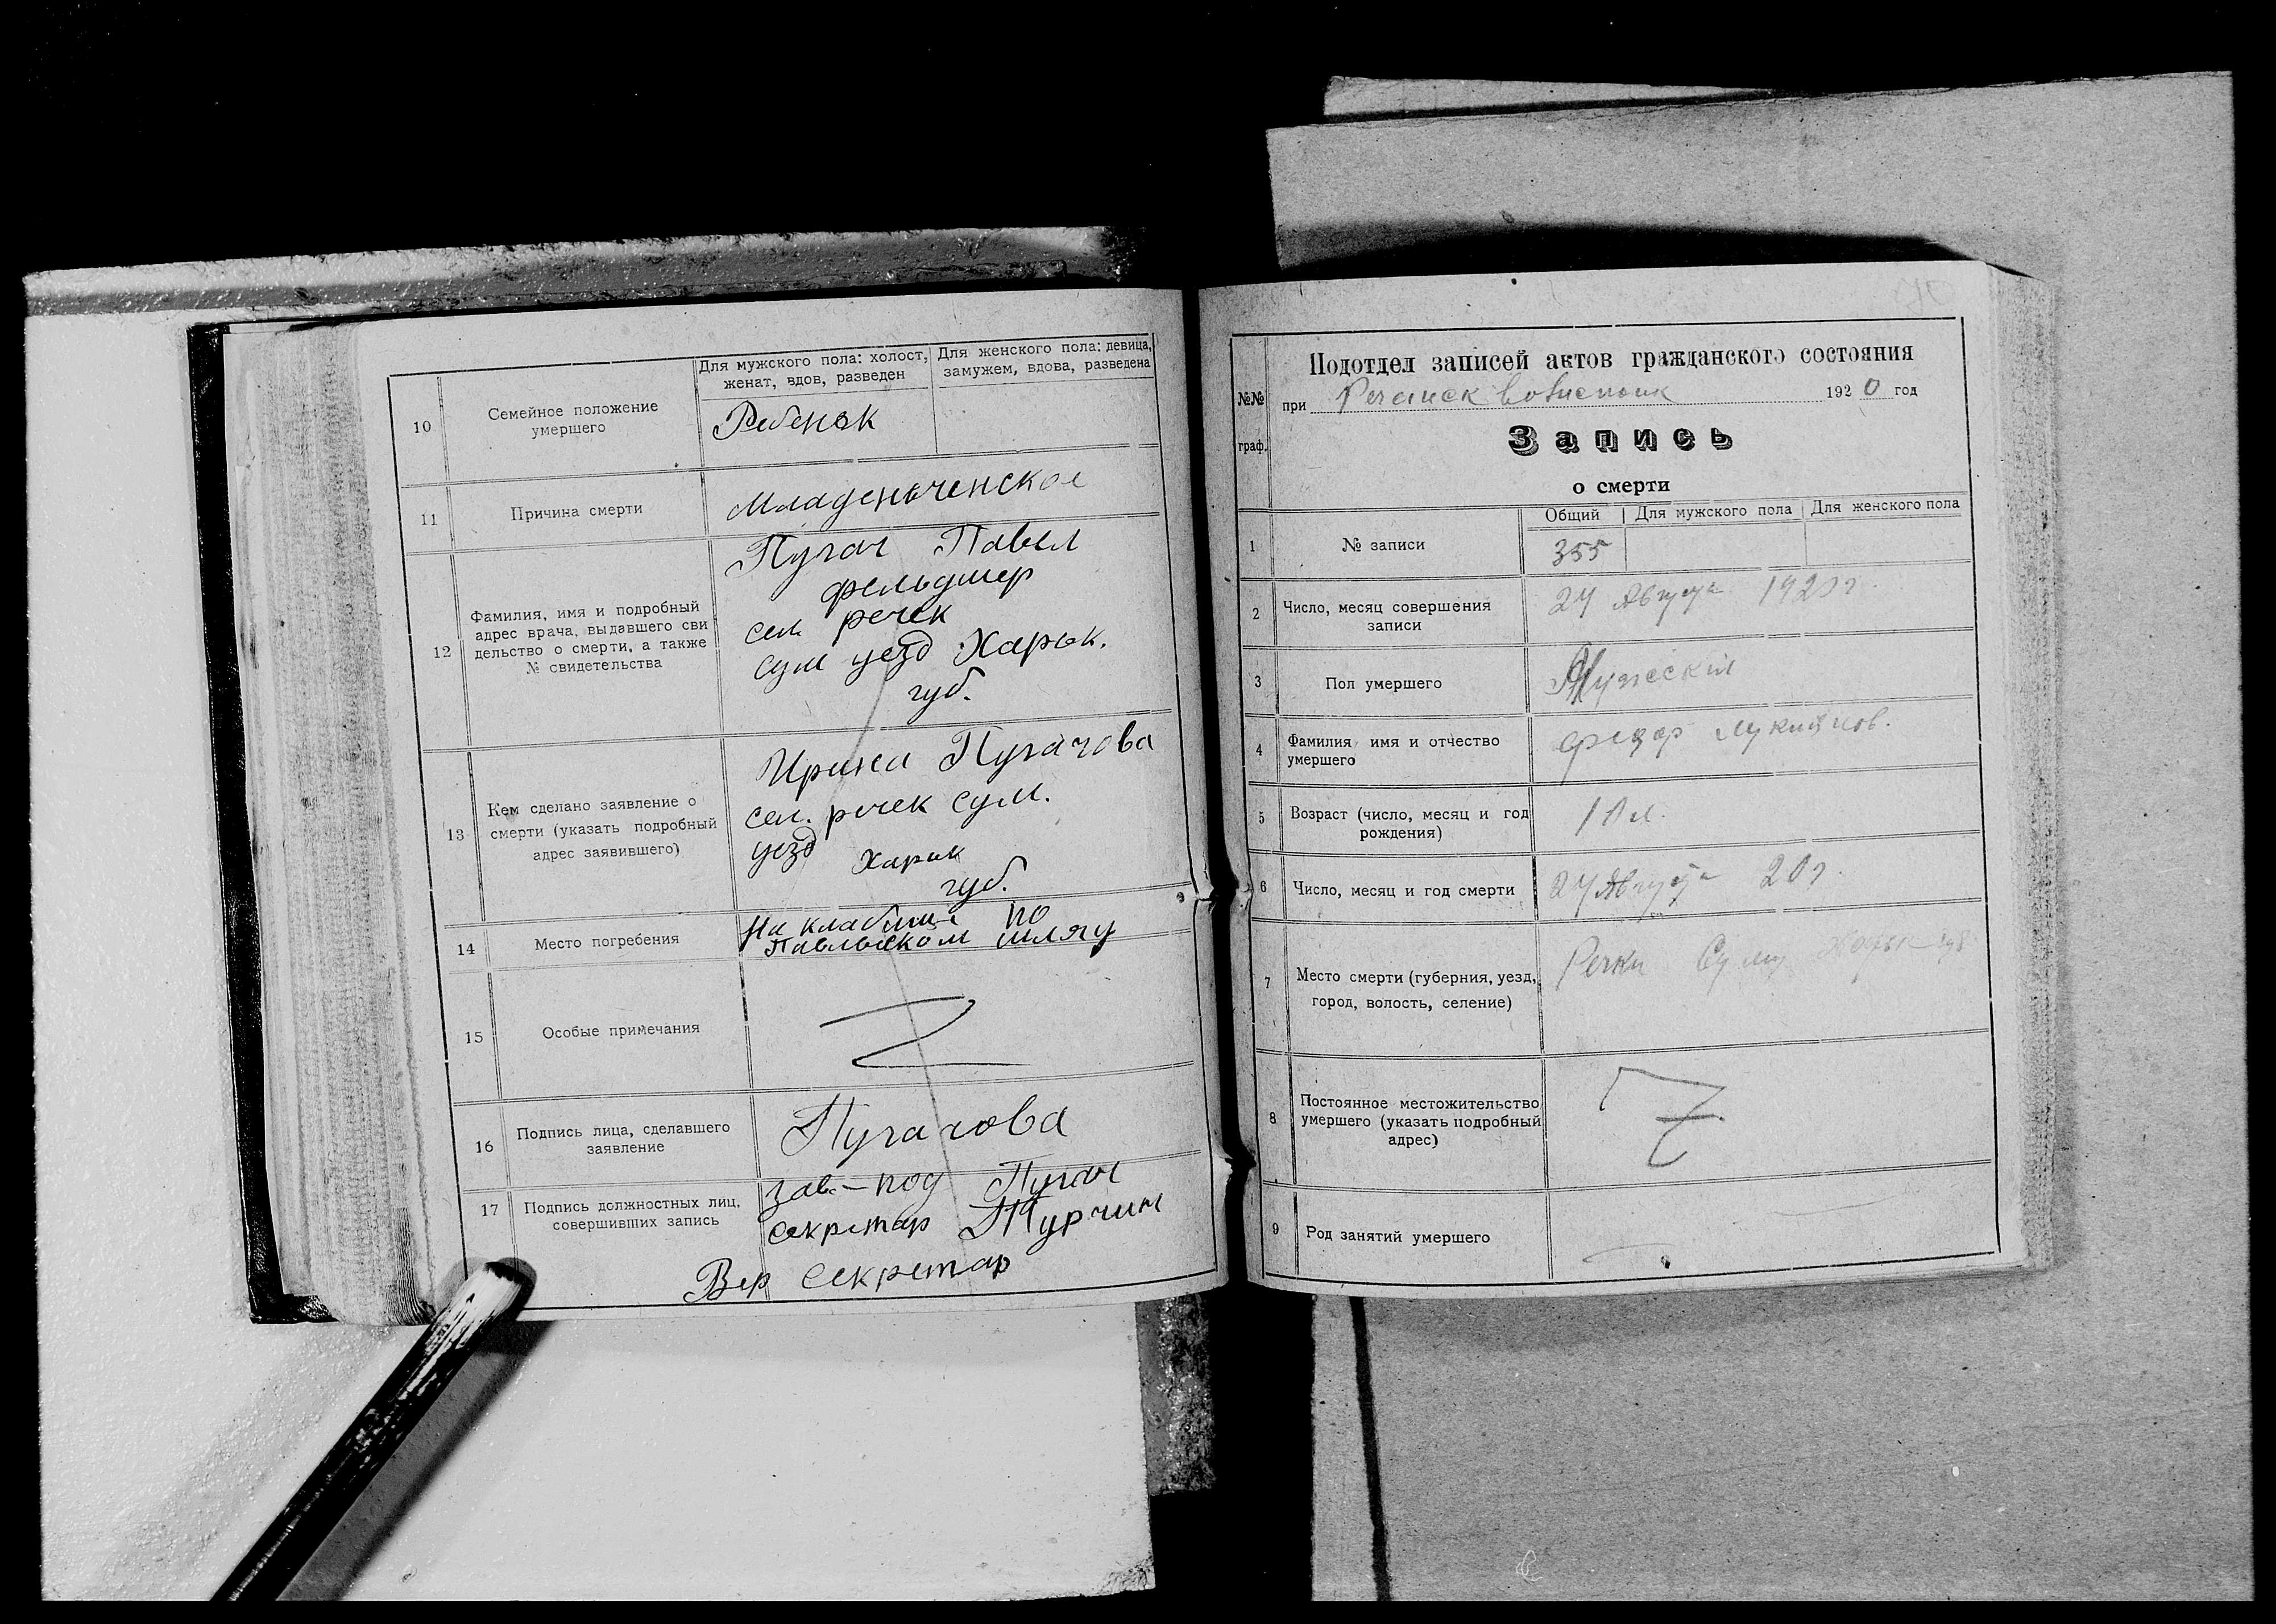 Для мужского пола: холост, женат, вдов, разведен
Для женского пола: девица, замужем, вдова, разведена
10
Семейное положение
умершего
Ребенок
11
Причина смерти
Младеньченское
12
Фамилия, имя и подробный
адрес врача, выдавшего сви
дельство о смерти, а также
№ свидетельства
Пугач Павел
фельдшер
сел. речек
сум уезд Харьк.
губ.
13
Кем сделано заявление о
смерти (указать подробный
адрес заявившего)
Ирина Пугачова
сел. речек Сум.
уезд Харьк
губ.
14
Место погребения
На кладбище по
Павловском шляху
15
Особые примечания
16
Подпись лица, сделавшего
заявление
Пугачова
17
Подпись должностных лиц,
совершивших запись
Зав.-под Пугач
секретар
Вер Секретар
№№
граф.
Подотдел записей актов гражданского состояния
при 1920 год
Запись
о смерти
Общий
Для мужского пола
Для женского пола
1
№ записи
355
2
Число, месяц совершения
записи
24 Августа 1920 г.
3
Пол умершего
Мужеский
4
Фамилия имя и отчество
умершего
Федор Лукиянов.
5
Возраст (число, месяц и год
рождения)
10 м.
6
Число, месяц и год смерти
24 Августа 20 г.
7
Место смерти (губерния, уезд,
город, волость, селение)
Речки Сум
8
Постоянное местожительство
умершего (указать подробный
адрес)
9
Род занятий умершего